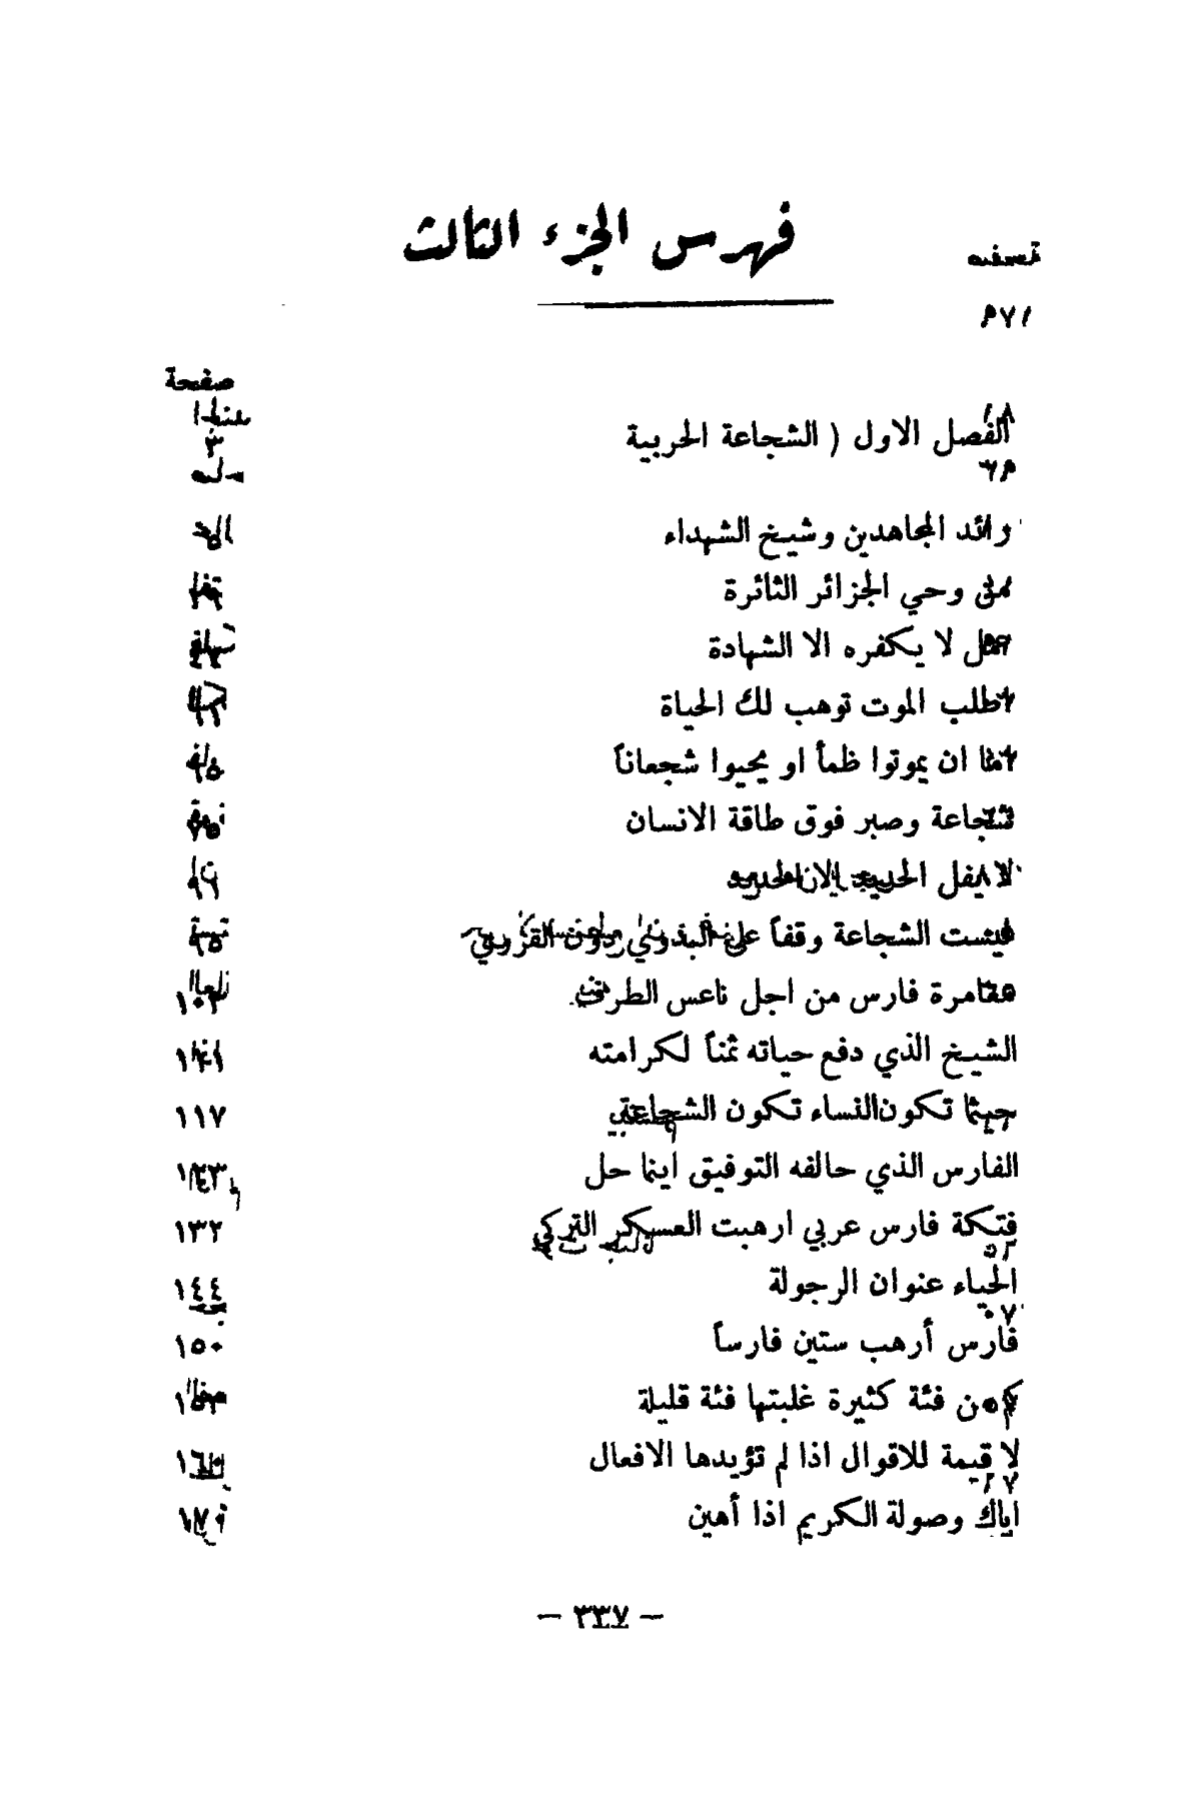 فهرس الجزء الثالث
صفحة
الفصل الاول ( الشجاعة الحربية ٣
رائد المجاهدين وشيخ الشهداء
من وحي الجزائر الثائرة
لا يكفره الا الشهادة
اطلب الموت توهب لك الحياة
اما ان يموتوا ظمأ او يحيوا شجعاناً
شجاعة وصبر فوق طاقة الانسان
لا يفل الحديد الا الحديد
ليست الشجاعة وقفاً على البدوي دون القروي ٩٥
مغامرة فارس من اجل ناعس الطرف ١٠٣
الشيخ الذي دفع حياته ثمناً لكرامته
حيثما تكون النساء تكون الشجاعة ١١٧
الفارس الذي حالفه التوفيق اينما حل
فتكة فارس عربي ارهبت العسكر التركي ١٣٢
الحياء عنوان الرجولة ١٤٤
فارس أرهب ستين فارساً ١٥٠
كم من فئة كثيرة غلبتها فئة قليلة
لا قيمة للاقوال اذا لم تؤيدها الافعال
اياك وصولة الكريم اذا أهين
— ٣٣٧ —